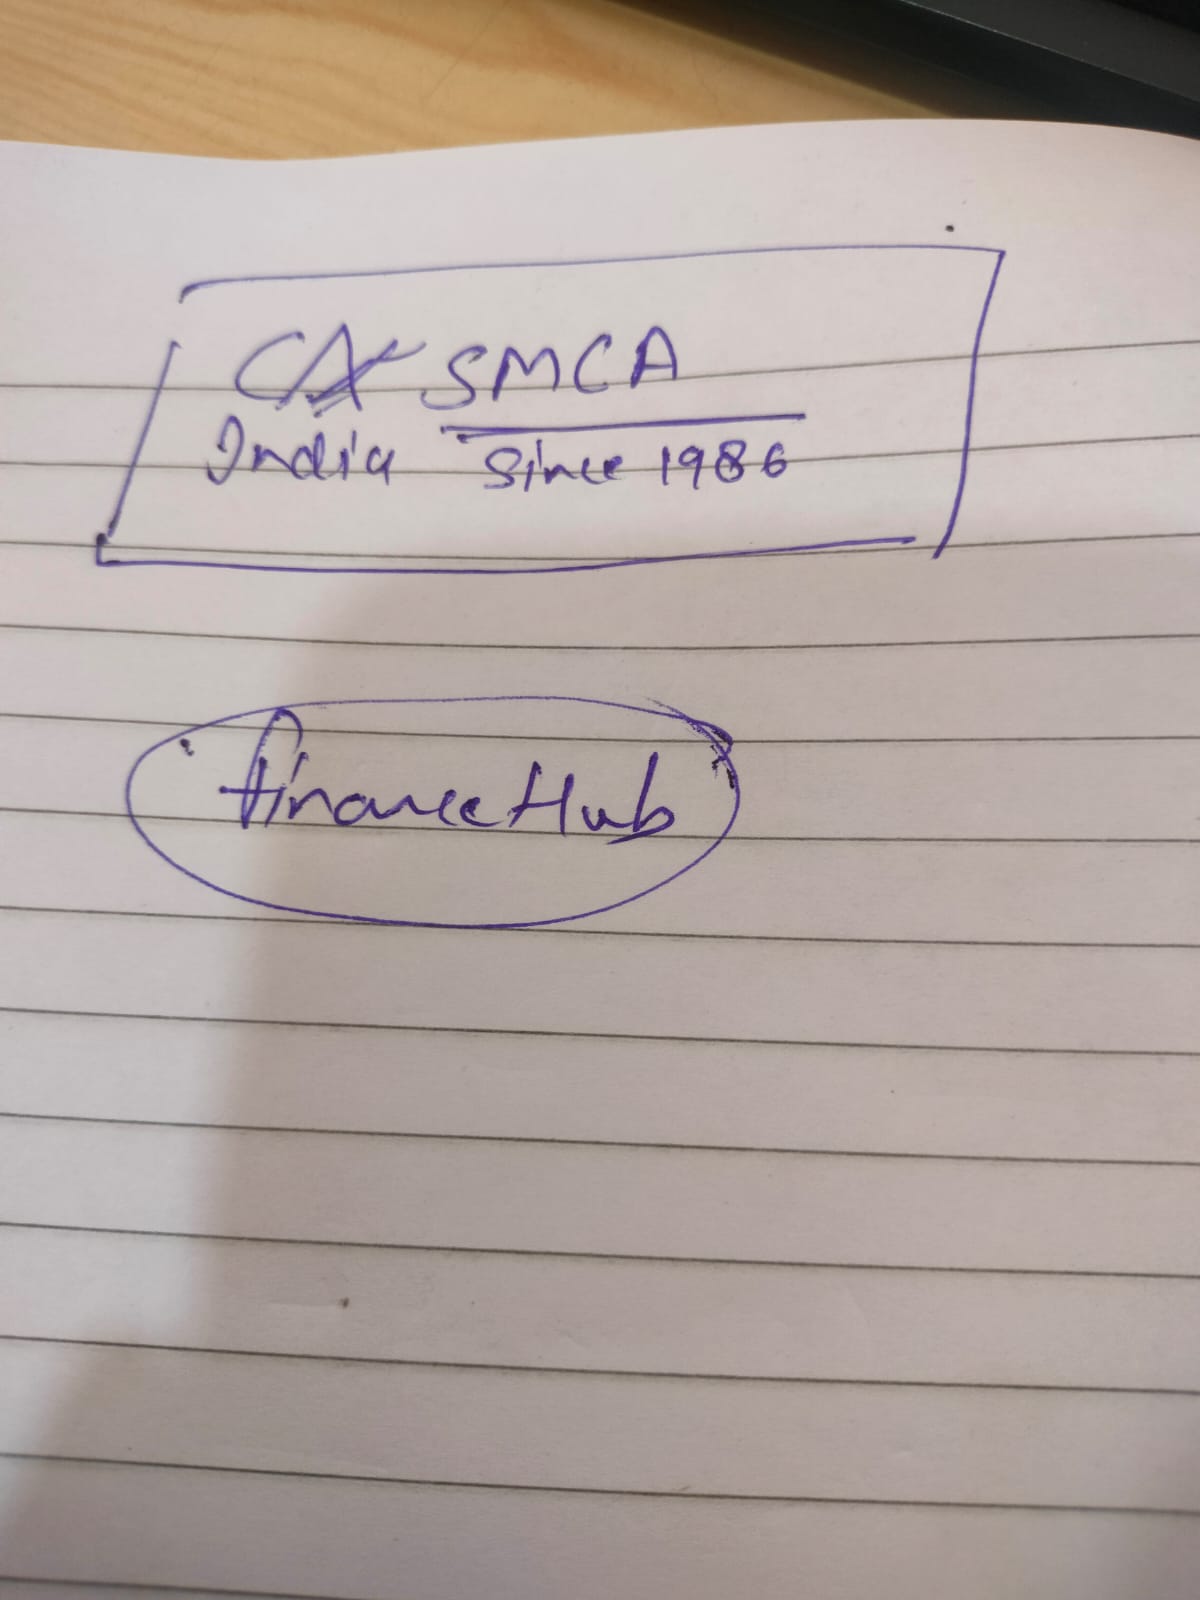 CA SMCA
India Since 1986
financeHub